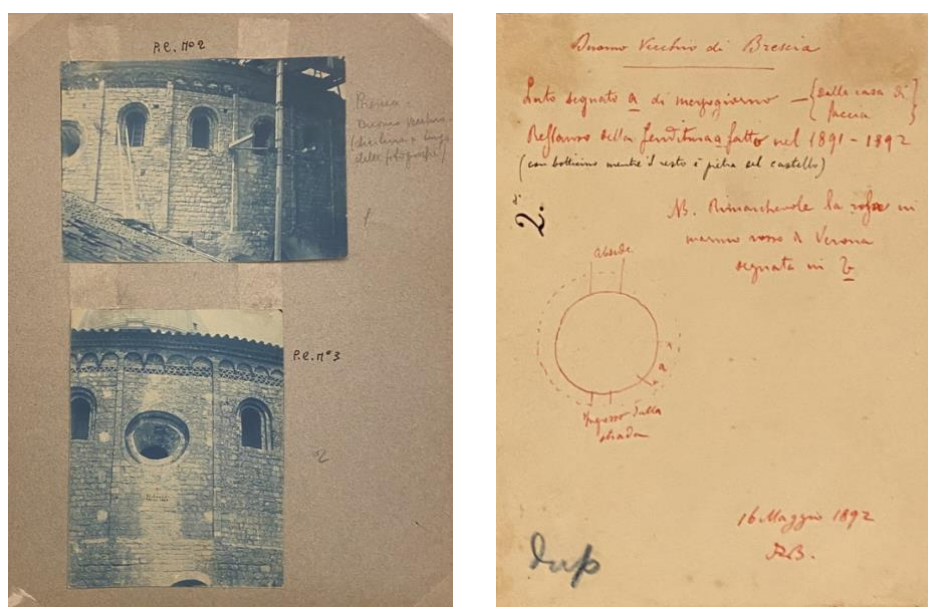 P.C. Nº 2
Brescia.
Duomo vecchio.
delle fotografie)
1
P.C. Nº 3
2
Duomo Vecchio di Brescia
Lato segnato a di mezzogiorno — { dalla casa di
faccia }
Restauro della fenditura fatto nel 1891 - 1892
(con botticino mentre il resto è pietra del castello)
2.
NB. Rimarchevole la rosa in
marmo rosso di Verona
segnata in b
abside
a
Ingresso dalla
strada
16 Maggio 1892
dup